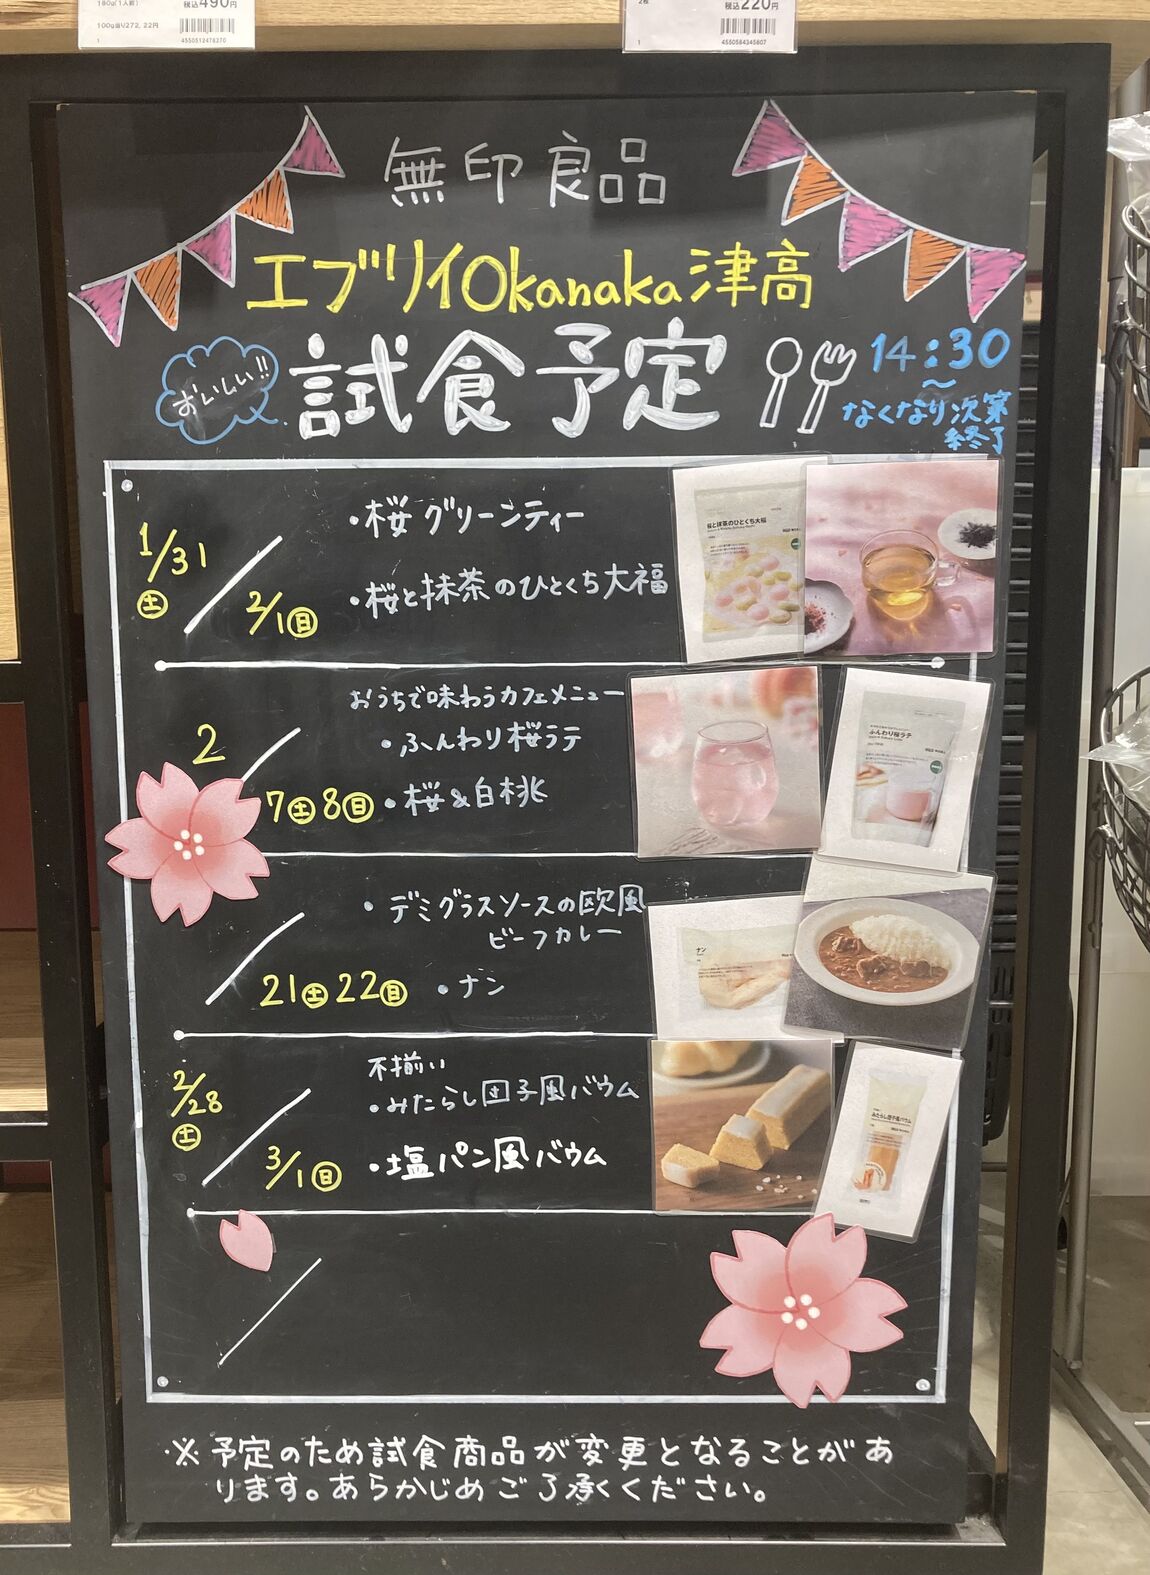 180g(1人前)
税込490円
100g当り272.22円
1
4550512476270
2枚
税込220円
1
4550584345807
無印良品
エブリイOkanaka津高
おいしい!!
試食予定
14:30
～
なくなり次第
終了
1/31
土
2/1日
・桜グリーンティー
・桜と抹茶のひとくち大福
桜と抹茶のひとくち大福
2
7土8日
おうちで味わうカフェメニュー
・ふんわり桜ラテ
・桜&白桃
ふんわり桜ラテ
21土22日
・デミグラスソースの欧風
ビーフカレー
・ナン
ナン
2/28
土
3/1日
不揃い
・みたらし団子風バウム
・塩パン風バウム
みたらし団子風バウム
※予定のため試食商品が変更となることがあ
ります。あらかじめご了承ください。